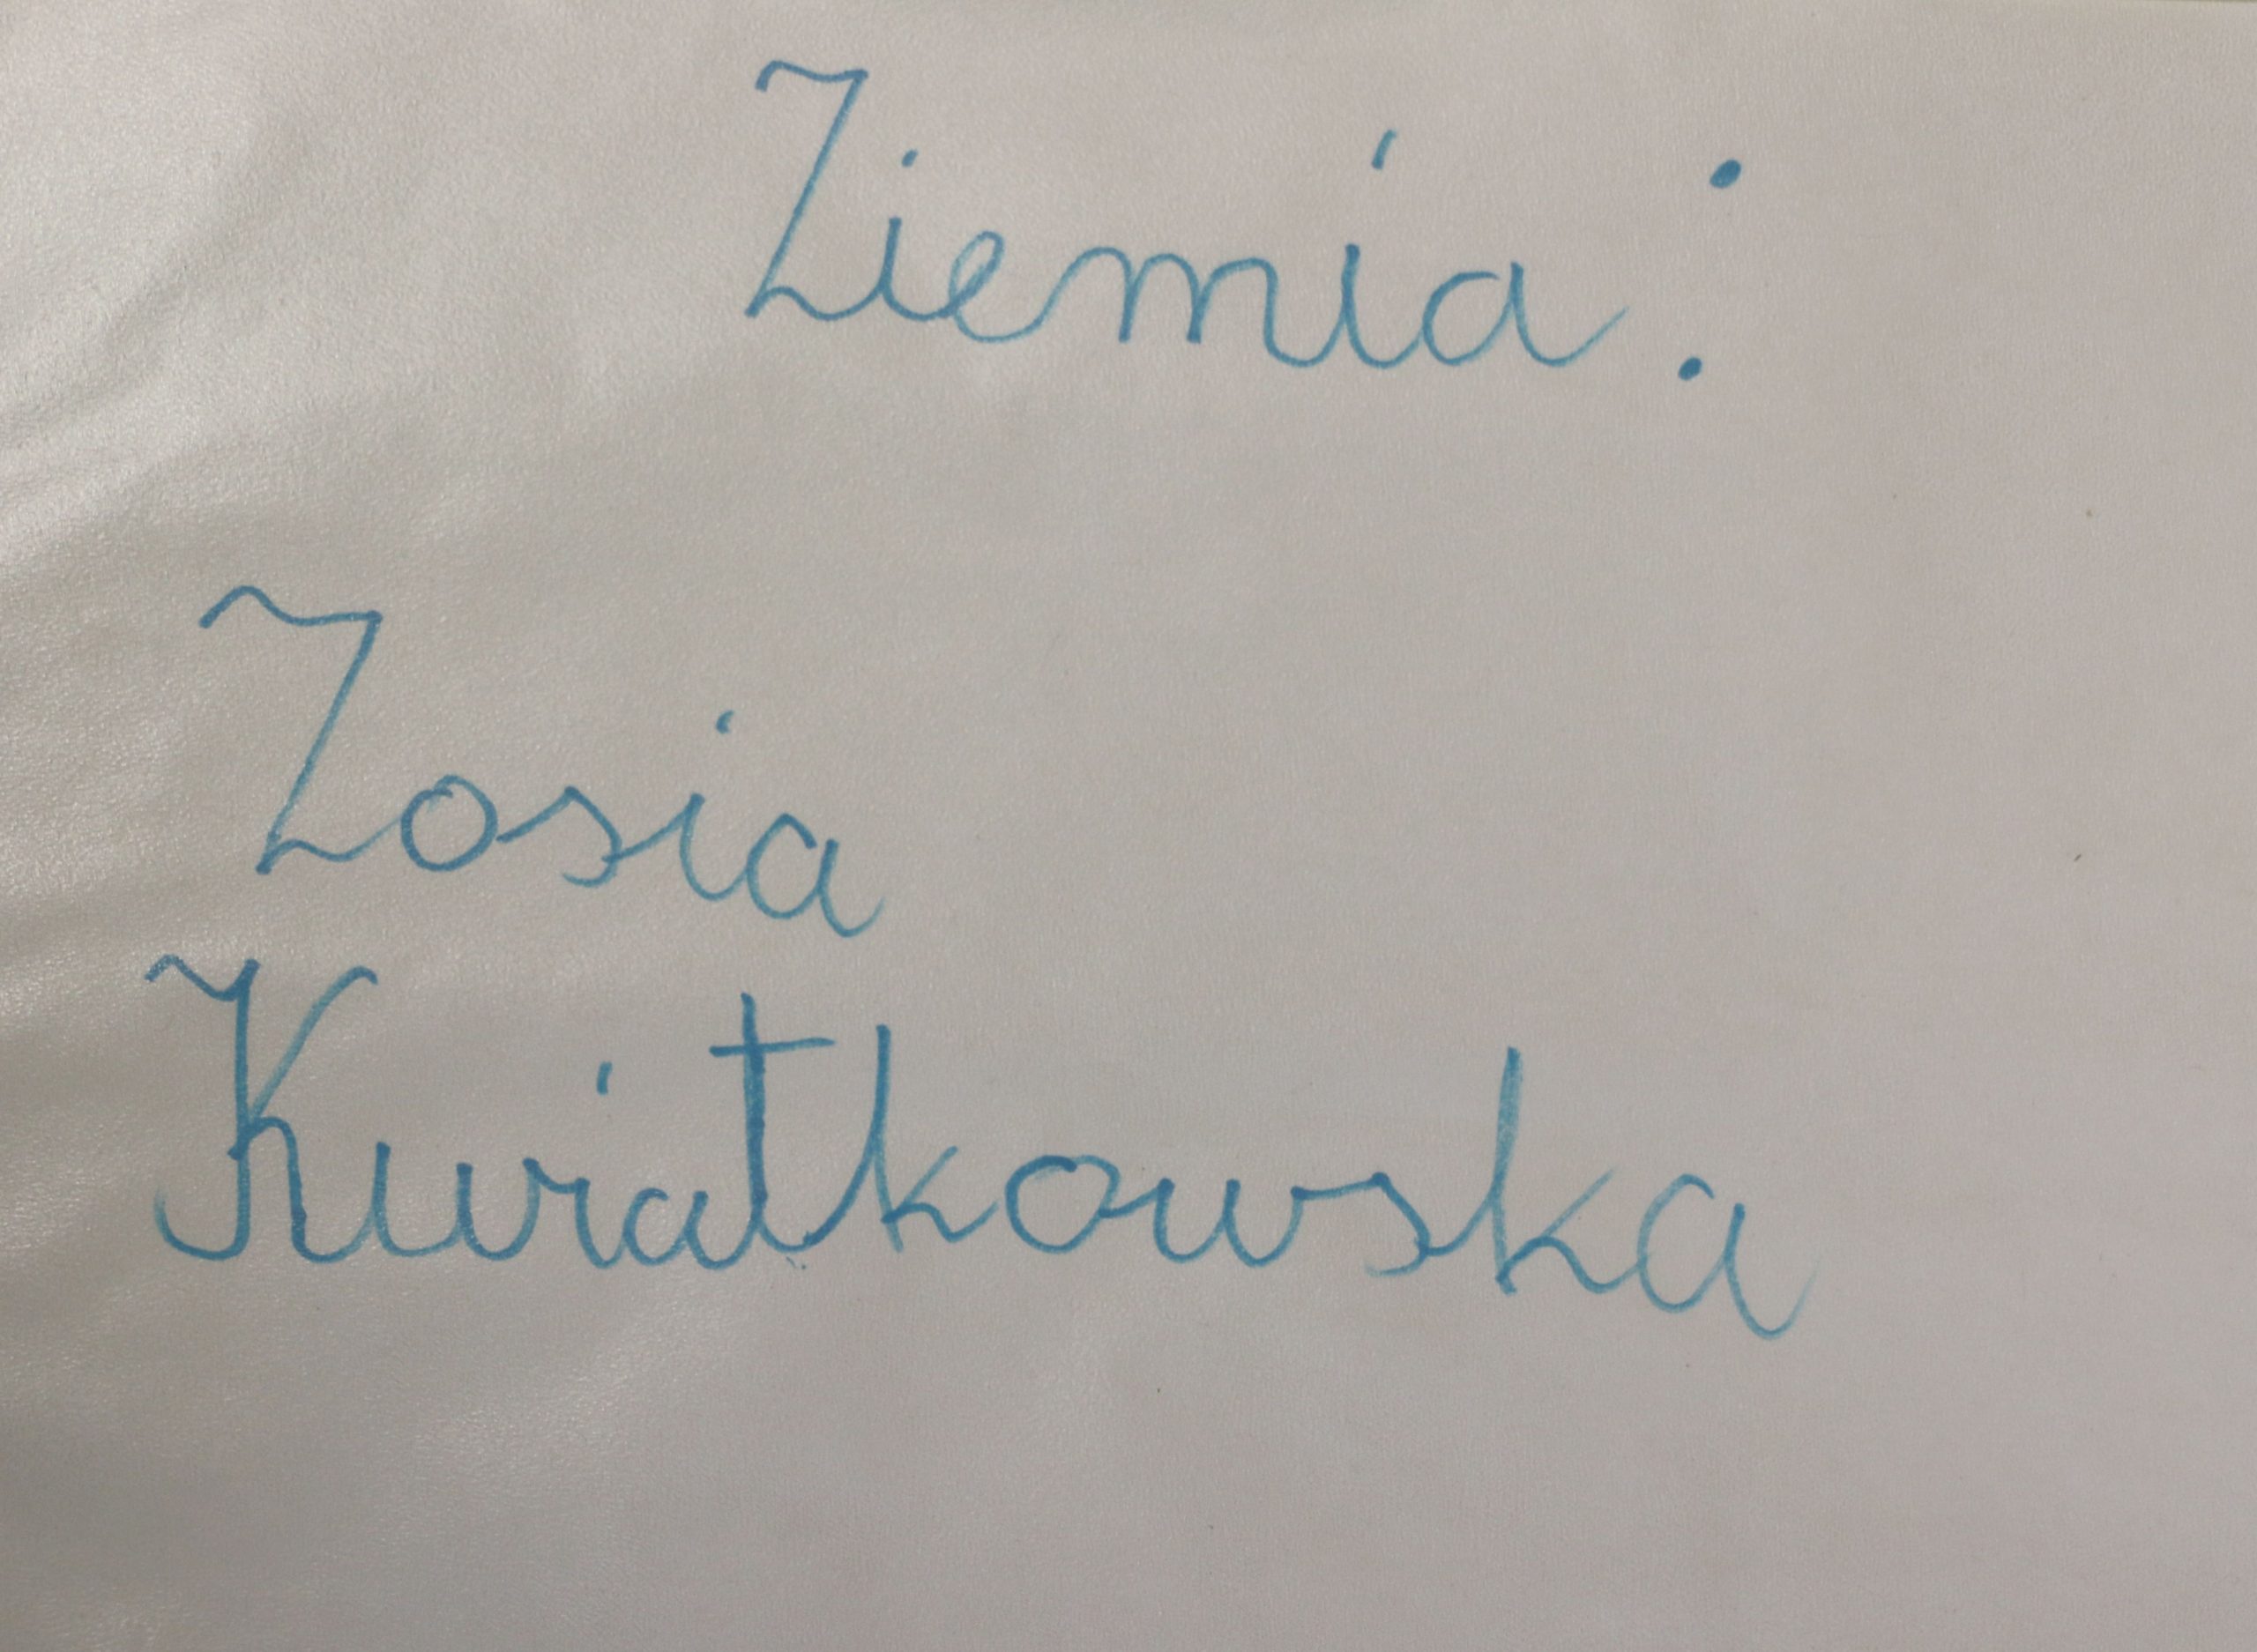 Ziemia :
Zosia
Kwiatkowska